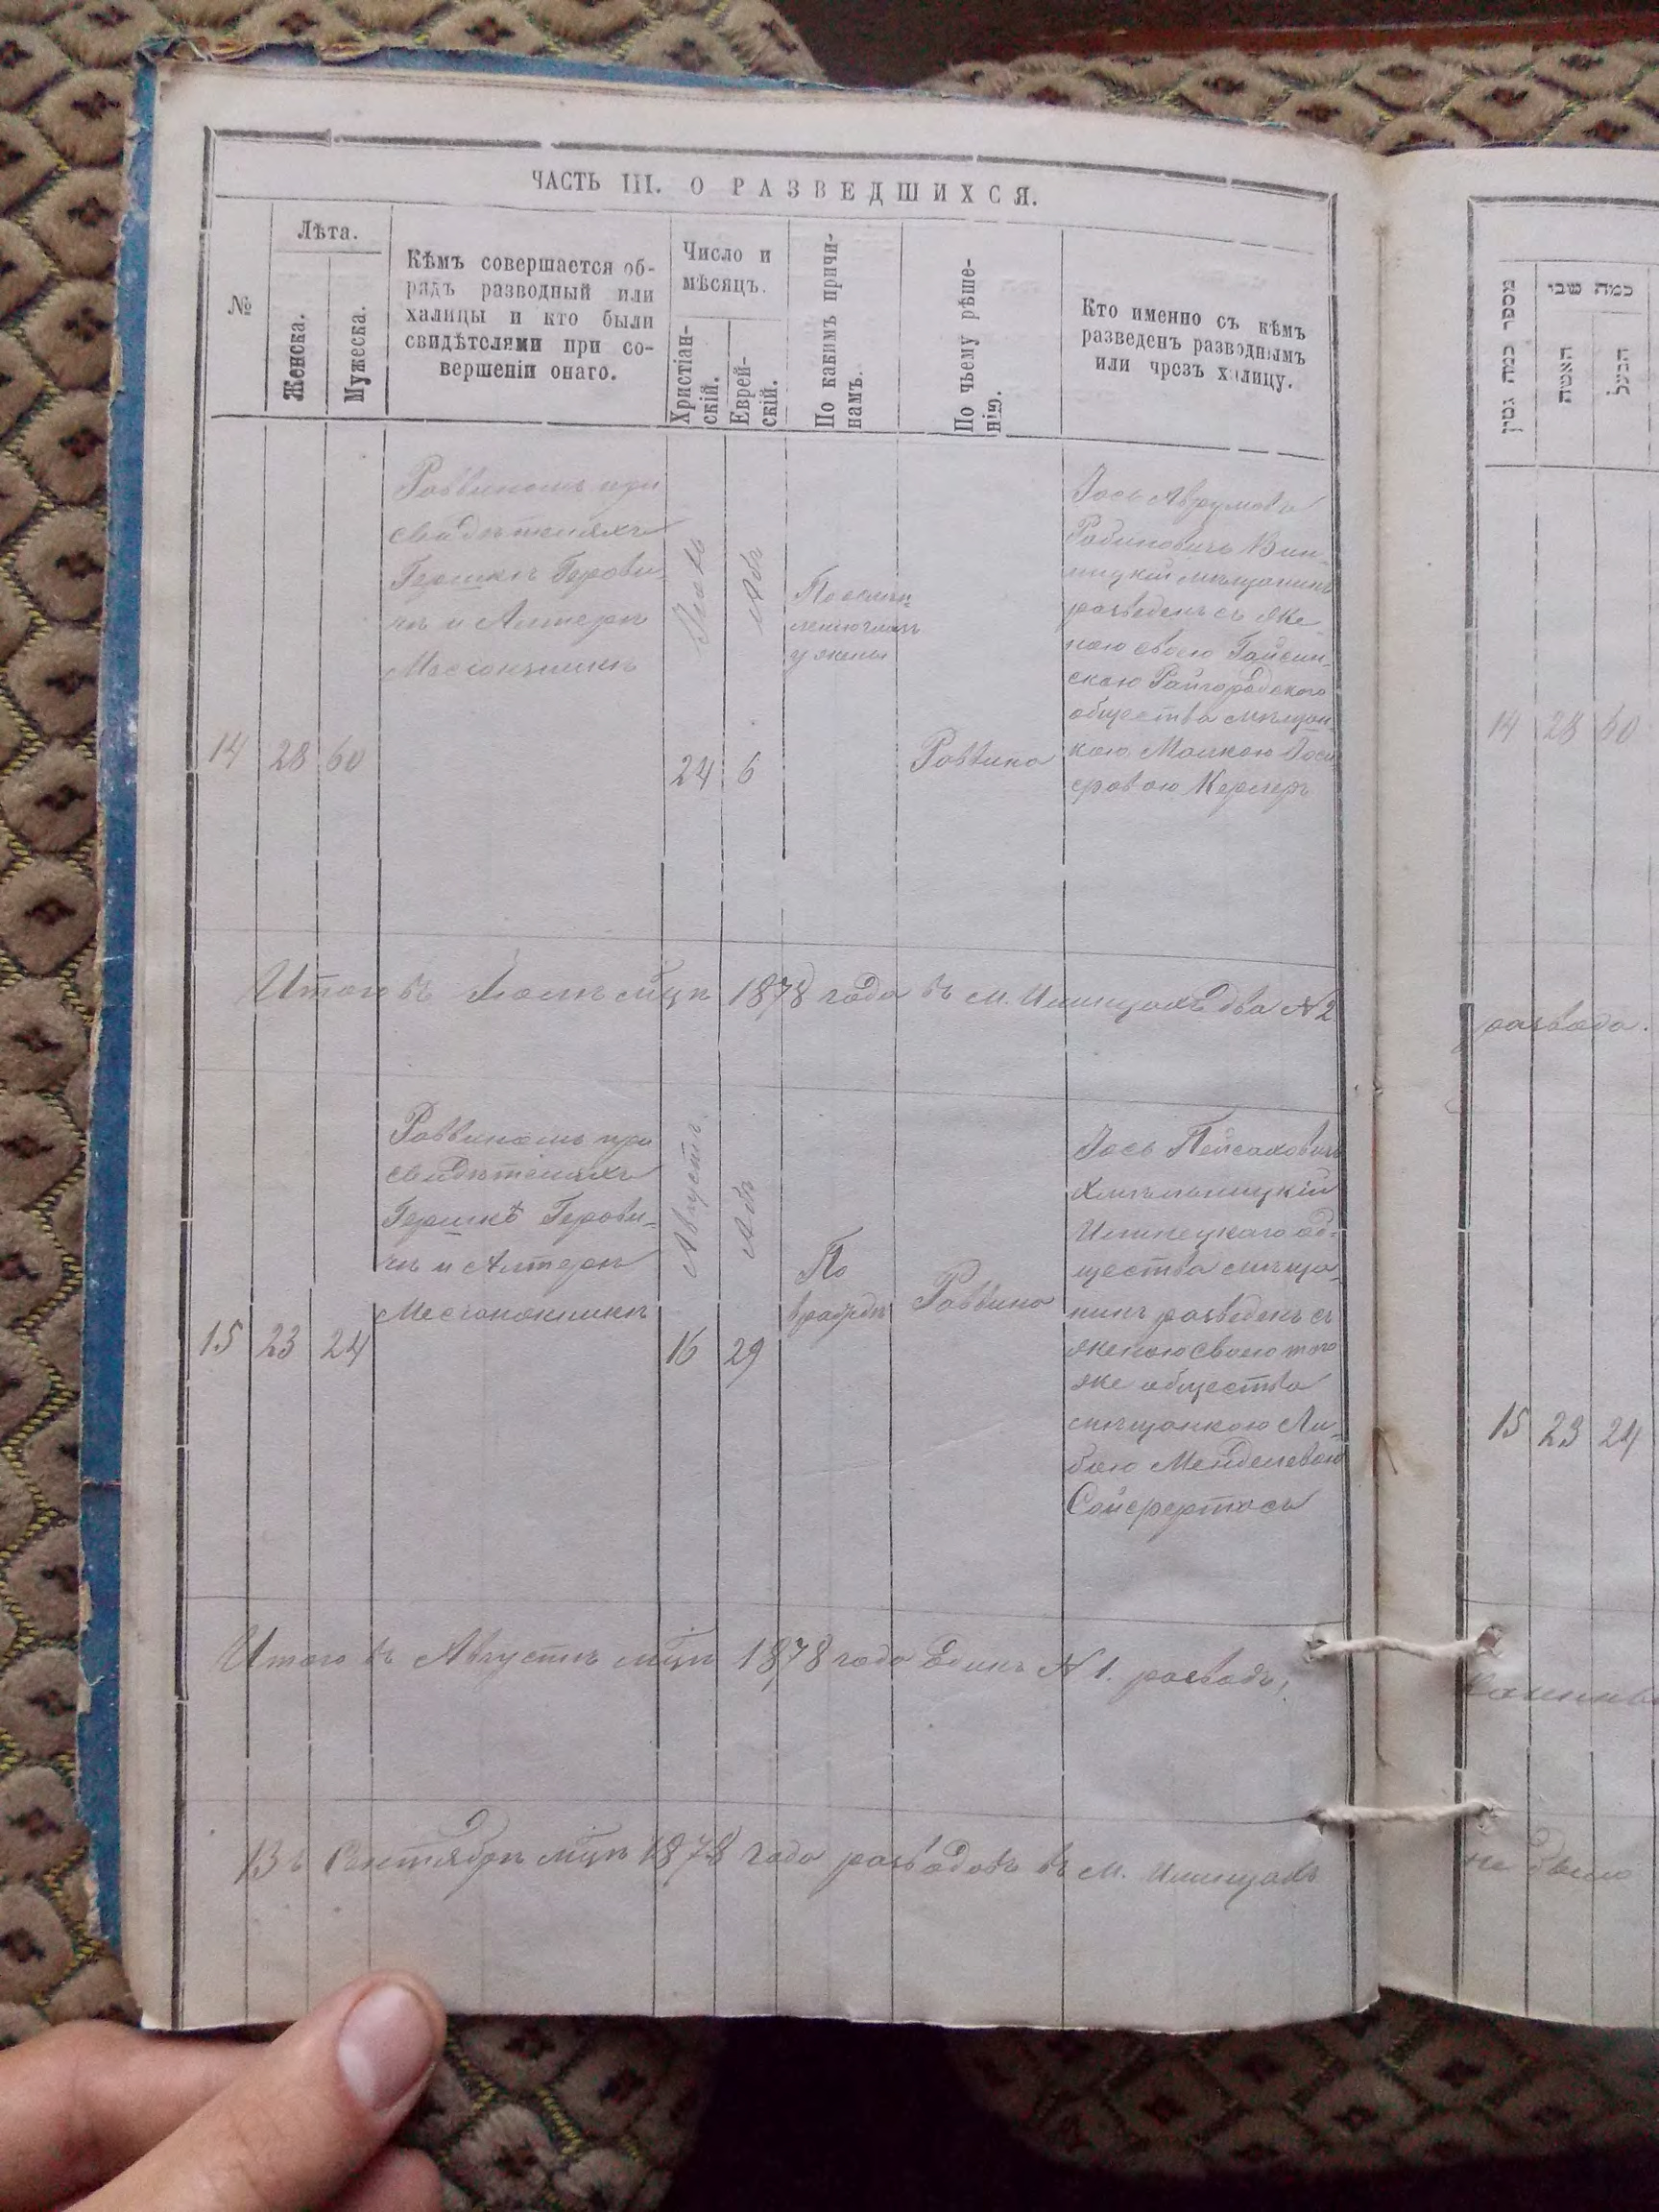 ЧАСТЬ III. О РАЗВЕДШИХСЯ.
№
Лѣта.
Женска.
Мужеска.
Кѣмъ совершается об-
рядъ разводный или
халицы и кто были
свидѣтелями при со-
вершеніи онаго.
Число и
мѣсяцъ.
Христіан-
скій.
Еврей-
скій.
По какимъ причи-
намъ.
По чьему рѣше-
нію.
Кто именно съ кѣмъ
разведенъ разводнымъ
или чрезъ халицу.
14
28
60
Раввиномъ при
свидѣтеляхъ
Гершкѣ Герови-
чѣ и Алтерѣ
24
6
Абъ
у жены
Раввина
Іось Аврумовъ
Рабиновичъ Вин-
ницкій мѣщанинъ
разведенъ съ же-
ною своею Гайсин-
скаю Райгородского
общества мѣщан-
кою Малкою Іос
Кернеръ
Итого въ мцѣ 1878 года въ м. Илинцахъ два № 2
15
23
24
Раввиномъ при
свидѣтеляхъ
Гершкѣ Герови-
чѣ и Алтерѣ
Августъ
16
Абъ
29
По
враждѣ
Раввина
Іось Пейсаховичъ
Хмѣльницкій
Илинецкаго об-
щества мѣща-
нинъ разведенъ съ
женою своею того
же общества
мѣщанкою Ли-
бою Менделевою
Итого въ Августѣ мцѣ 1878 года Единъ № 1. разводъ,
Въ Сентябрѣ мцѣ 1878 года разводовъ въ м. Илинцахъ
מספר כמה גטין
כמה שני
האשה
הבעל
14
28
60
развода.
15
23
24
не было